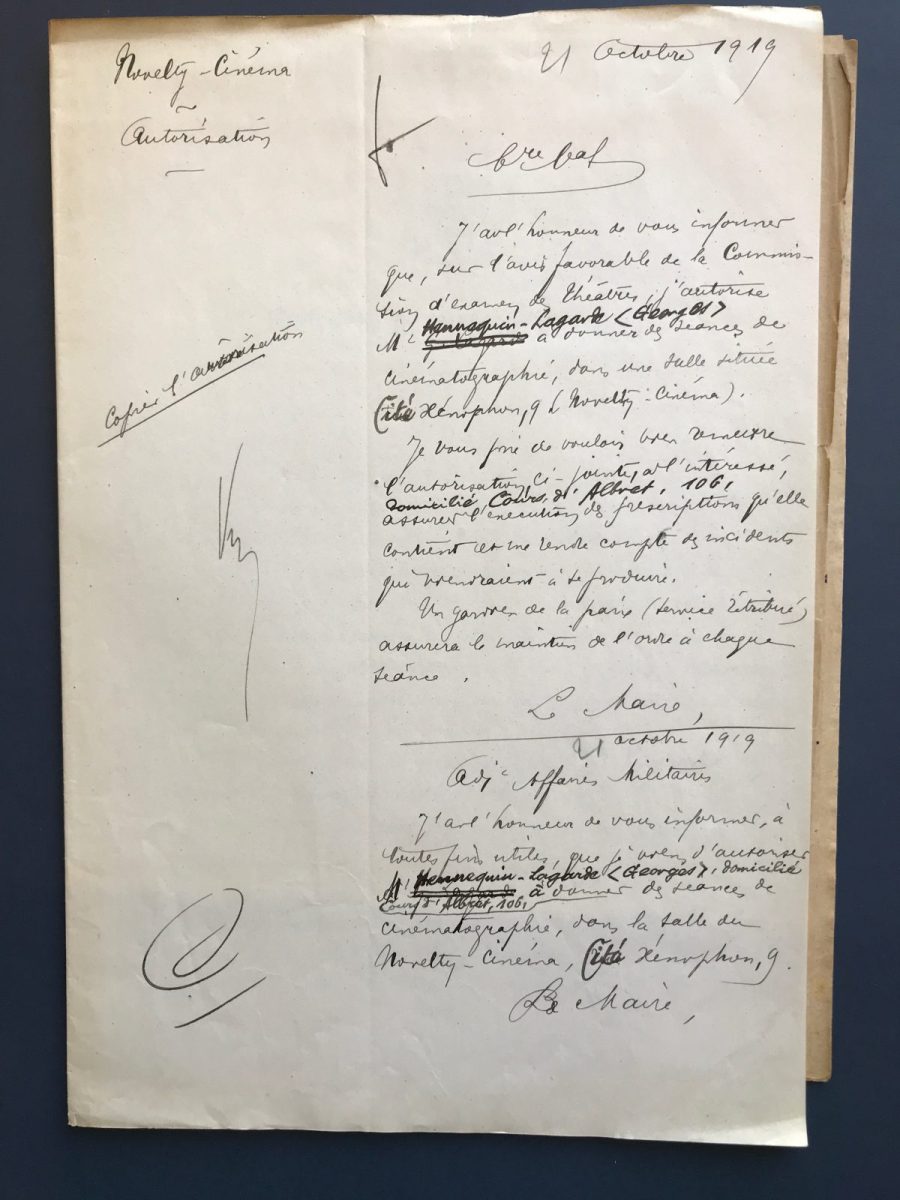 Novelty-Cinéma
~
Autorisation
21 Octobre 1919
J'ai l'honneur de vous informer
que, sur l'avis favorable de la Commis-
sion d'examen des théâtres, j'autorise
Mr Hennequin-Lagarde <Georges>
à donner des séances de
cinématographie, dans une salle située
Cité Xénophon, 9 (Novelty-Cinéma).
Copier l'autorisation
Je vous prie de vouloir bien remettre
l'autorisation, ci-jointe, à l'intéressé,
domicilié Cours d'Albret, 106,
assurer l'exécution des prescriptions qu'elle
contient et me rendre compte des incidents
qui viendraient à se produire.
Un gardien de la paix (service rétribué)
assurera le maintien de l'ordre à chaque
séance.
Le Maire,
21 octobre 1919
Adjt Affaires Militaires
J'ai l'honneur de vous informer, à
toutes fins utiles, que je viens d'autoriser
Mr Hennequin-Lagarde <Georges>, domicilié
Cours d'Albret, 106, à donner des séances de
cinématographie, dans la salle du
Novelty-Cinéma, Cité Xénophon, 9.
Le Maire,